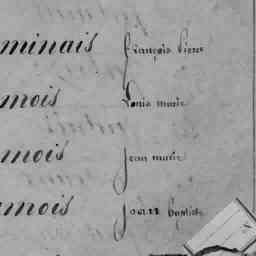 minais françois Pierre
mois Louis marie
mois jean marie
mois jean Baptiste